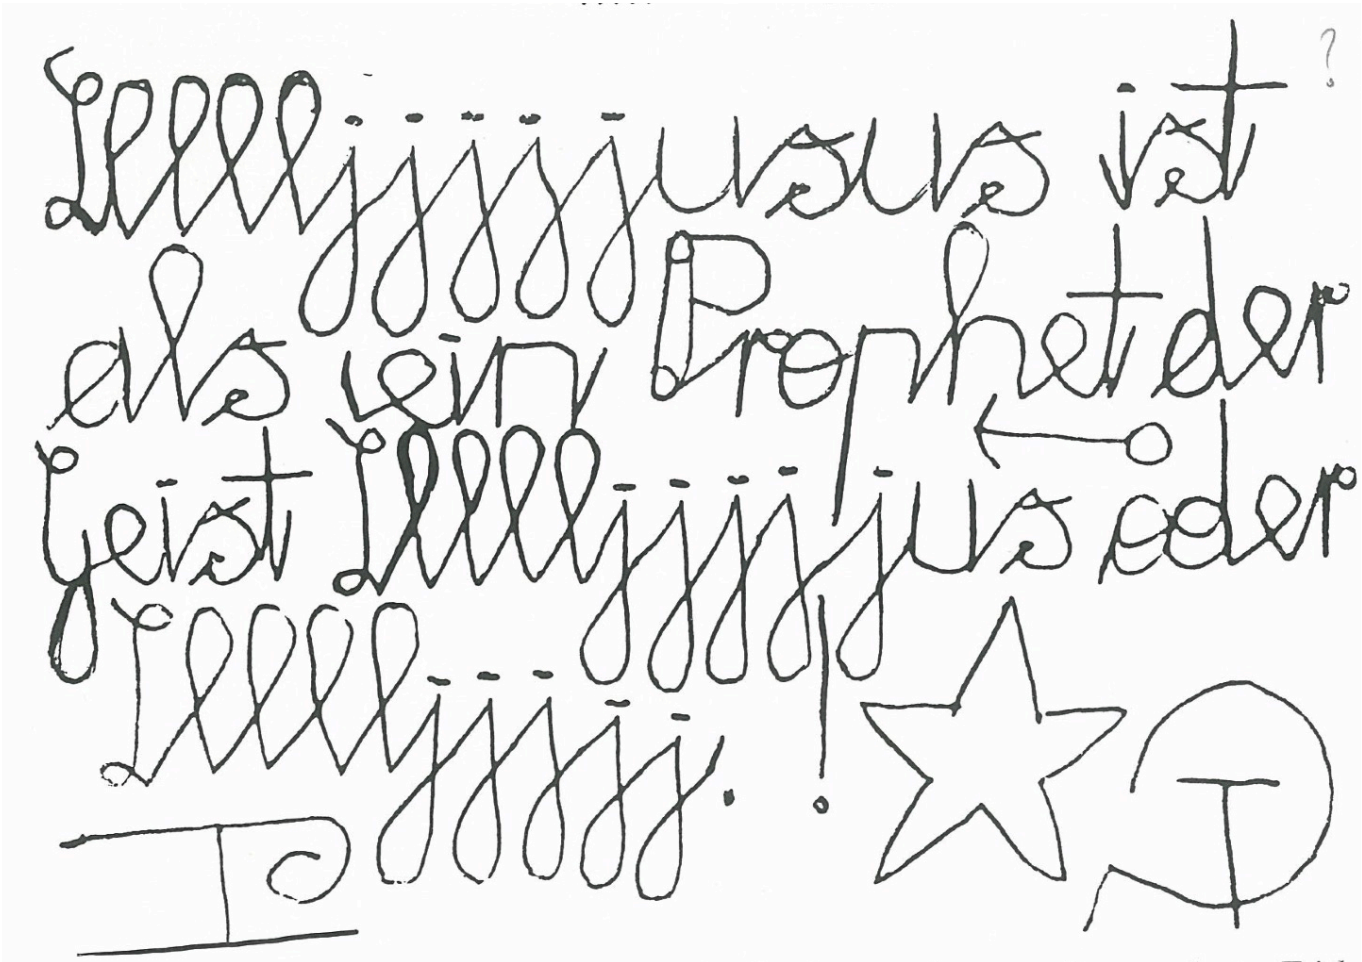 Llllljjjjjusus ist ?
als ein Prophet der
Geist Llllljjjjjus oder
Llllljjjjj. !